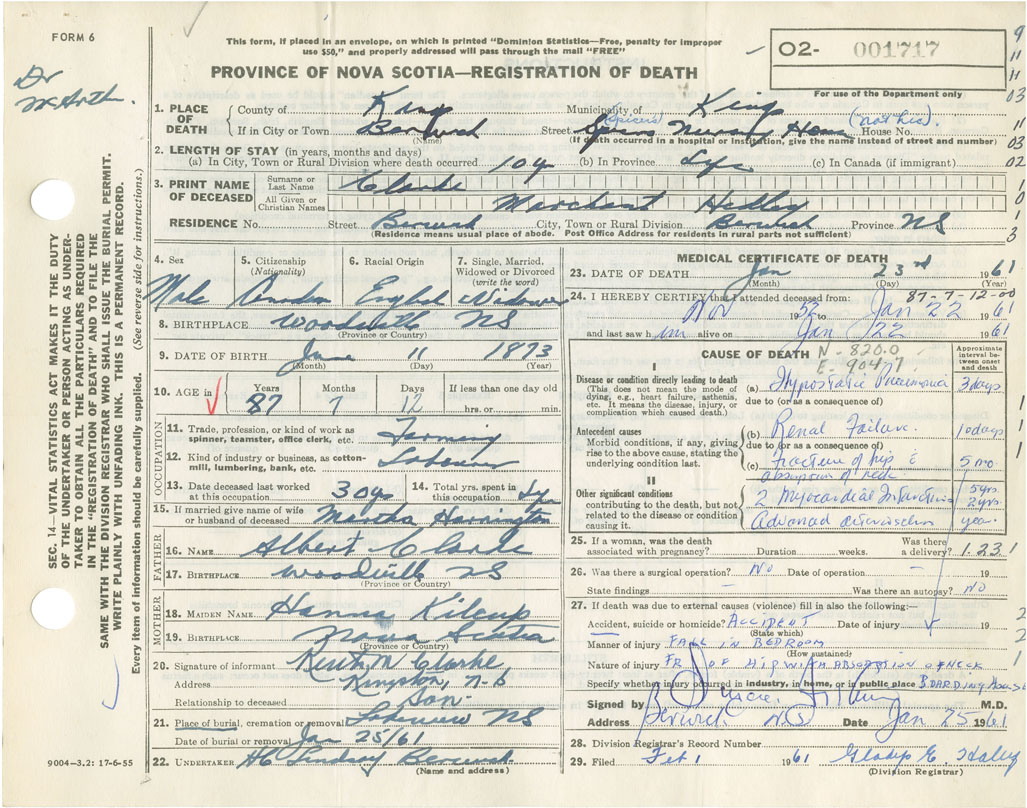 FORM 6
This form, if placed in an envelope, on which is printed "Dominion Statistics—Free, penalty for improper
use $50," and properly addressed will pass through the mail "FREE"
02- 001717
PROVINCE OF NOVA SCOTIA—REGISTRATION OF DEATH
For use of the Department only
Dr
SEC. 14—VITAL STATISTICS ACT MAKES IT THE DUTY
OF THE UNDERTAKER OR PERSON ACTING AS UNDER-
TAKER TO OBTAIN ALL THE PARTICULARS REQUIRED
IN THE "REGISTRATION OF DEATH" AND TO FILE THE
SAME WITH THE DIVISION REGISTRAR WHO SHALL ISSUE THE BURIAL PERMIT.
WRITE PLAINLY WITH UNFADING INK. THIS IS A PERMANENT RECORD.
Every item of information should be carefully supplied. (See reverse side for instructions.)
1. PLACE OF DEATH
County of Kings Municipality of Kings
If in City or Town Berwick Street (Spicers) Nursing Home (not lic). House No.
(Name) (If death occurred in a hospital or institution, give the name instead of street and number)
2. LENGTH OF STAY (in years, months and days)
(a) In City, Town or Rural Division where death occurred 10 y (b) In Province Life (c) In Canada (if immigrant)
3. PRINT NAME OF DECEASED
Surname or Last Name Clarke
All Given or Christian Names Merchant Hedley
RESIDENCE No. Street Berwick City, Town or Rural Division Berwick Province NS
(Residence means usual place of abode. Post Office Address for residents in rural parts not sufficient)
4. Sex Male
5. Citizenship (Nationality) Canadian
6. Racial Origin English
7. Single, Married, Widowed or Divorced (write the word) Widower
8. BIRTHPLACE Woodville NS
(Province or Country)
9. DATE OF BIRTH June 11 1873
(Month) (Day) (Year)
10. AGE in Years 87 Months 7 Days 12 If less than one day old hrs. or min.
OCCUPATION
11. Trade, profession, or kind of work as spinner, teamster, office clerk, etc. Farming
12. Kind of industry or business, as cotton-mill, lumbering, bank, etc. Labourer
13. Date deceased last worked at this occupation 30 yr
14. Total yrs. spent in this occupation Life
15. If married give name of wife or husband of deceased Martha Harrington
FATHER
16. NAME Albert Clarke
17. BIRTHPLACE Woodville NS
(Province or Country)
MOTHER
18. MAIDEN NAME Hanna Kilcup
19. BIRTHPLACE Nova Scotia
(Province or Country)
20. Signature of informant Keith M Clarke
Address Kingston, N-S
Relationship to deceased Son.
21. Place of burial, cremation or removal Lakeview NS
Date of burial or removal Jan 25/61
22. UNDERTAKER HC Lindsay Berwick
(Name and address)
9004-3.2: 17-6-55
MEDICAL CERTIFICATE OF DEATH
23. DATE OF DEATH Jan 23rd 1961
(Month) (Day) (Year)
87-7-12-00
24. I HEREBY CERTIFY that I attended deceased from:
Nov 1952 to Jan 22 1961
and last saw him alive on Jan 22 1961
CAUSE OF DEATH N-820.0
E-904-7
Approximate interval between onset and death
I
Disease or condition directly leading to death
(This does not mean the mode of dying, e.g., heart failure, asthenia, etc. It means the disease, injury, or complication which caused death.)
(a) Hypostatic Pneumonia 3 days
due to (or as a consequence of)
Antecedent causes
Morbid conditions, if any, giving rise to the above cause, stating the underlying condition last.
(b) Renal Failure. 10 days
due to (or as a consequence of)
(c) Fracture of hip c absorption of neck 5 mo
II
Other significant conditions
contributing to the death, but not related to the disease or condition causing it.
2 Myocardial Infarctions 5 yrs. 2 yrs.
Advanced arteriosclerosis years.
25. If a woman, was the death associated with pregnancy? Duration weeks. Was there a delivery? 1.23 1
26. Was there a surgical operation? No Date of operation — 19
State findings — Was there an autopsy? No
27. If death was due to external causes (violence) fill in also the following:—
Accident, suicide or homicide? ACCIDENT Date of injury 19
(State which)
Manner of injury FALL IN BEDROOM
(How sustained)
Nature of injury FR OF HIP WITH ABSORPTION OF NECK
Specify whether injury occurred in industry, in home, or in public place BOARDING HOUSE
Signed by M.D.
Address Berwick NS Date Jan 25 1961
28. Division Registrar's Record Number
29. Filed Feb 1 1961 Gladys E. Haley
(Division Registrar)